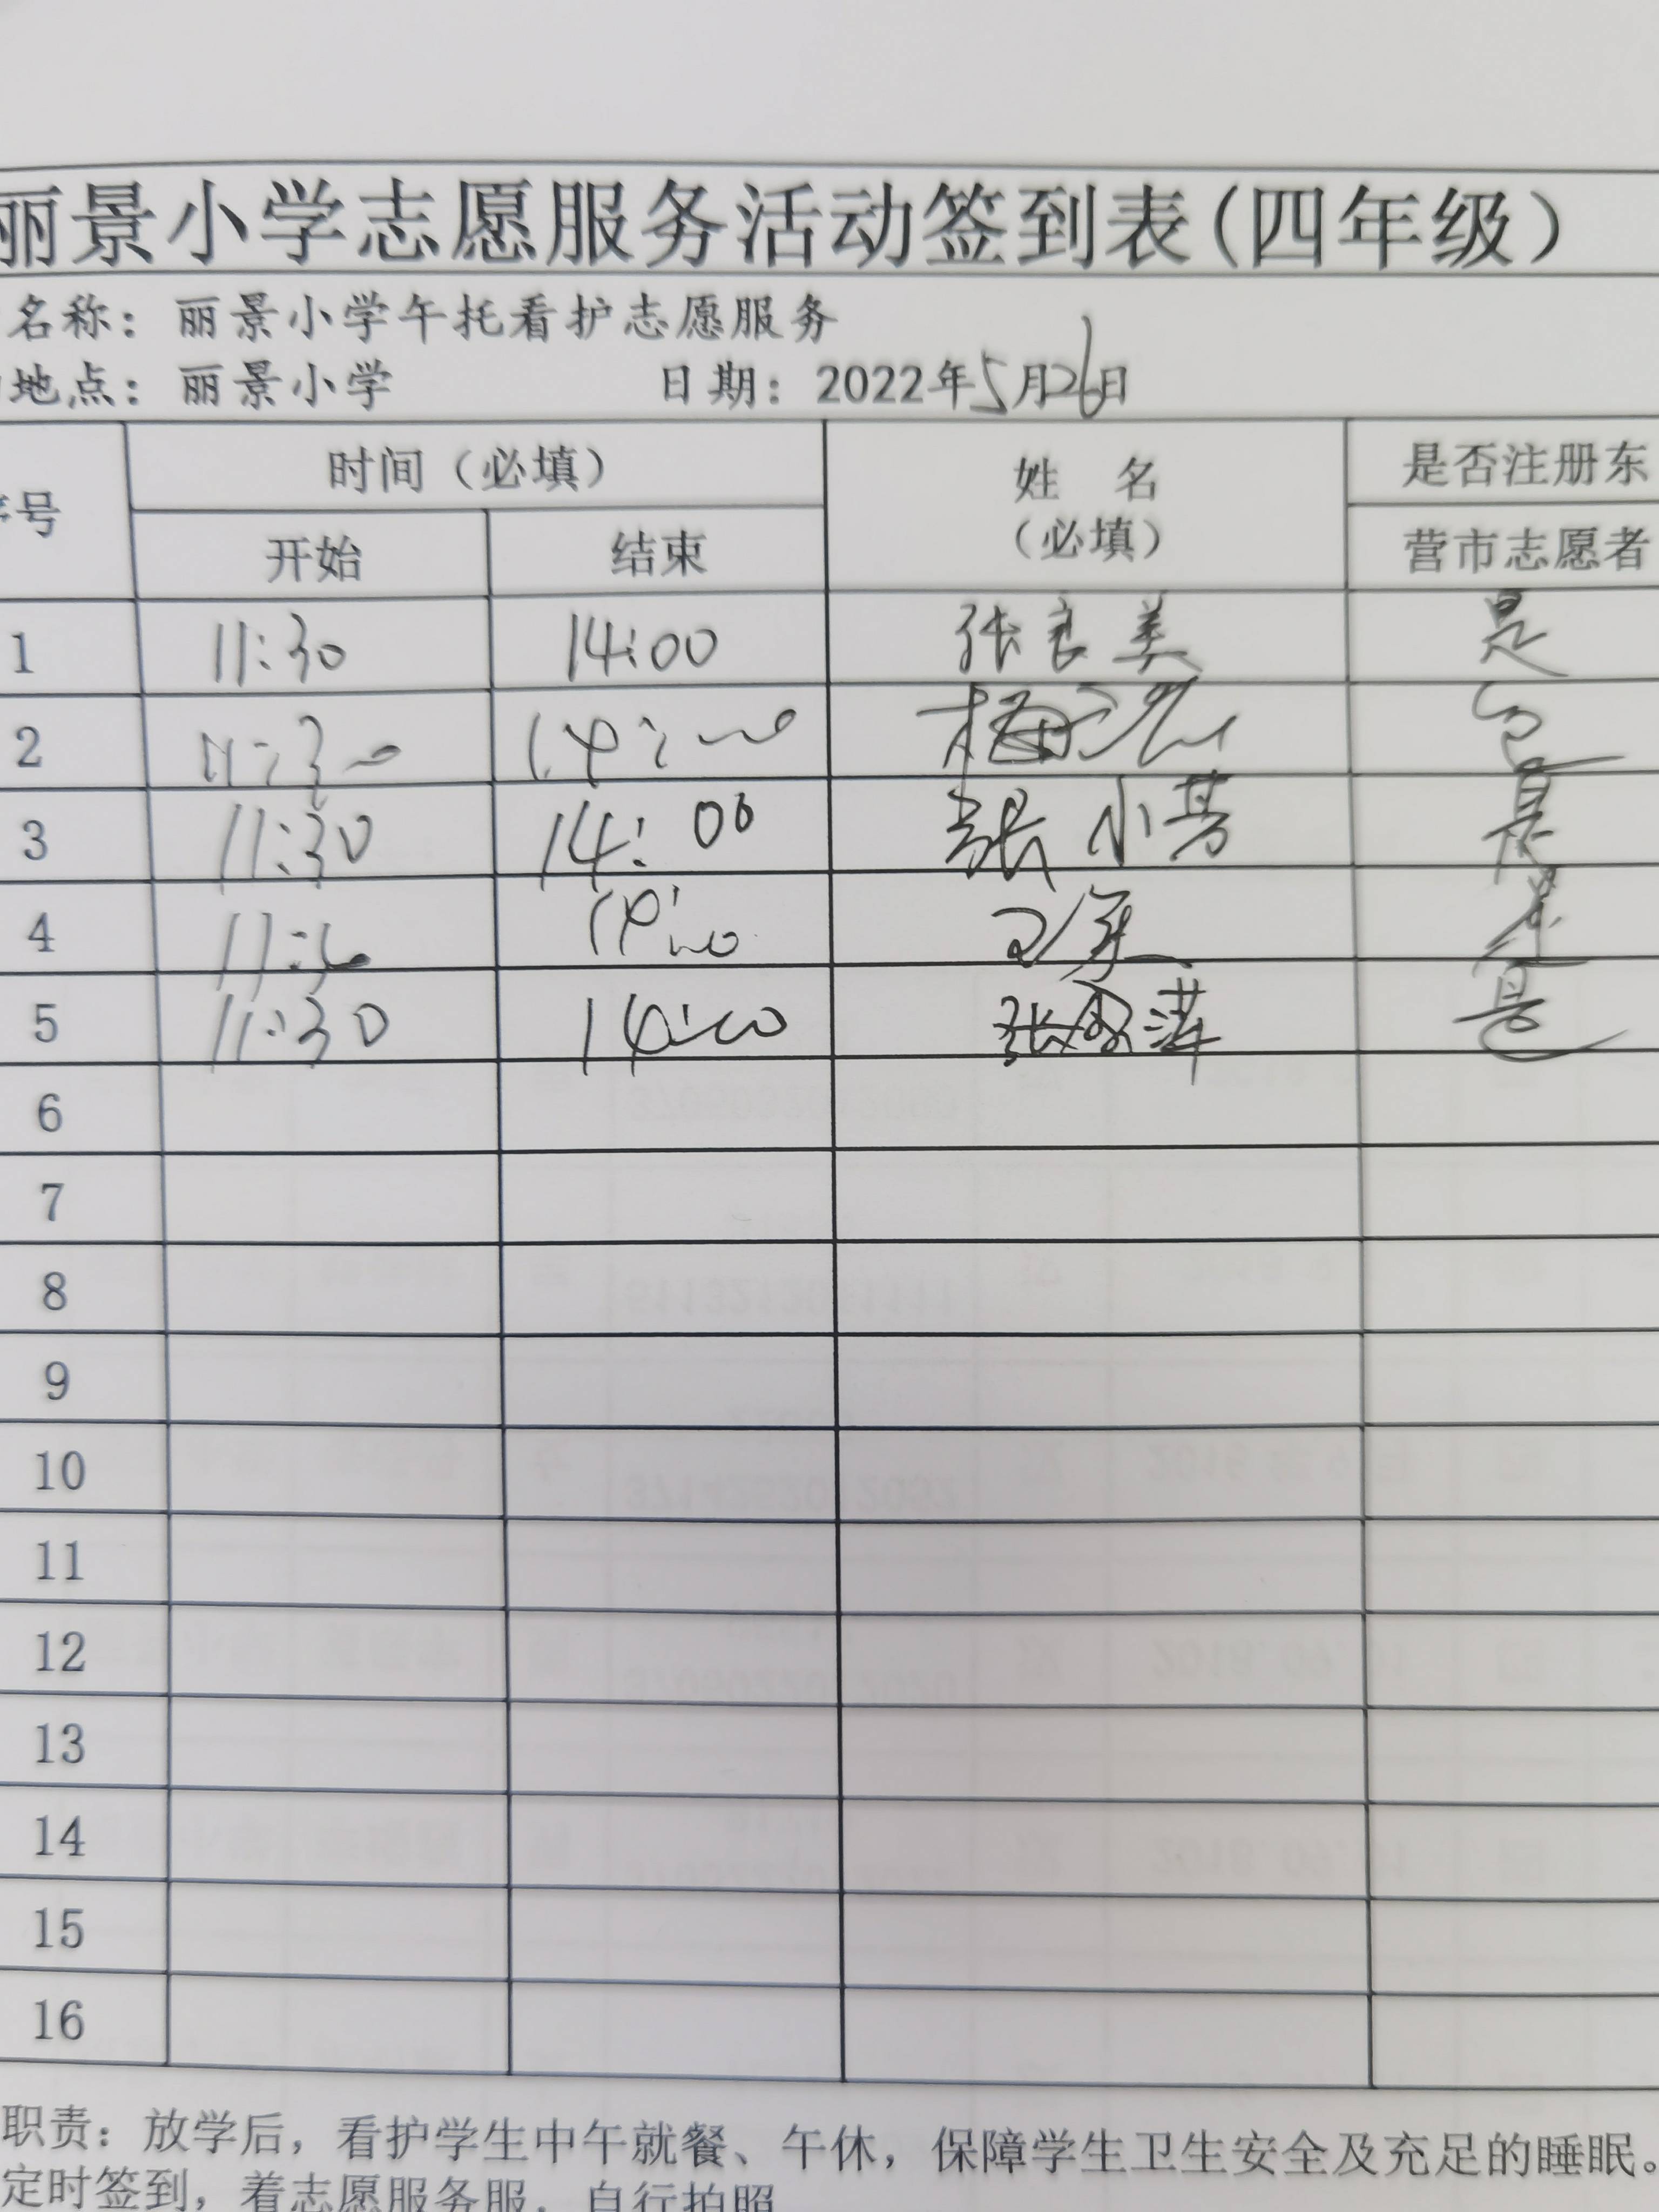 丽景小学志愿服务活动签到表(四年级)
名称：丽景小学午托看护志愿服务
地点：丽景小学 日期：2022年5月26日
号 时间（必填） 姓 名 （必填） 是否注册东
开始 结束 营市志愿者
1 11:30 14:00 张良美 是
2 11:30 14:00 梅 是
3 11:30 14:00 张小芳 是
4 11:30 14:00 是
5 11:30 14:00 张 萍 是
6
7
8
9
10
11
12
13
14
15
16
职责：放学后，看护学生中午就餐、午休，保障学生卫生安全及充足的睡眠。
定时签到，着志愿服务服，自行拍照